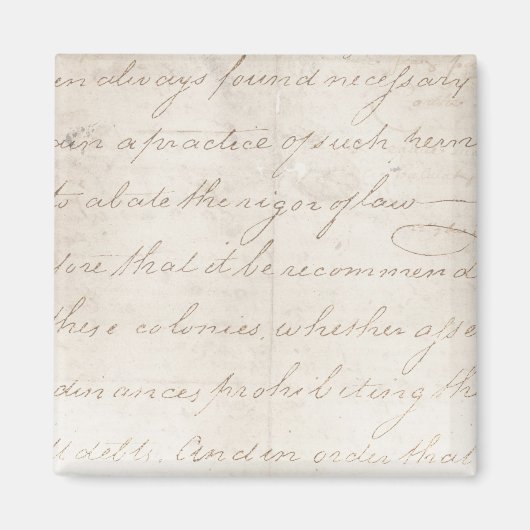 en always found necessary
ain a practice of such herm
to abate the rigor of law
fore that it be recommend
these colonies, whether asse
dinances prohibiting th
debts. And in order that